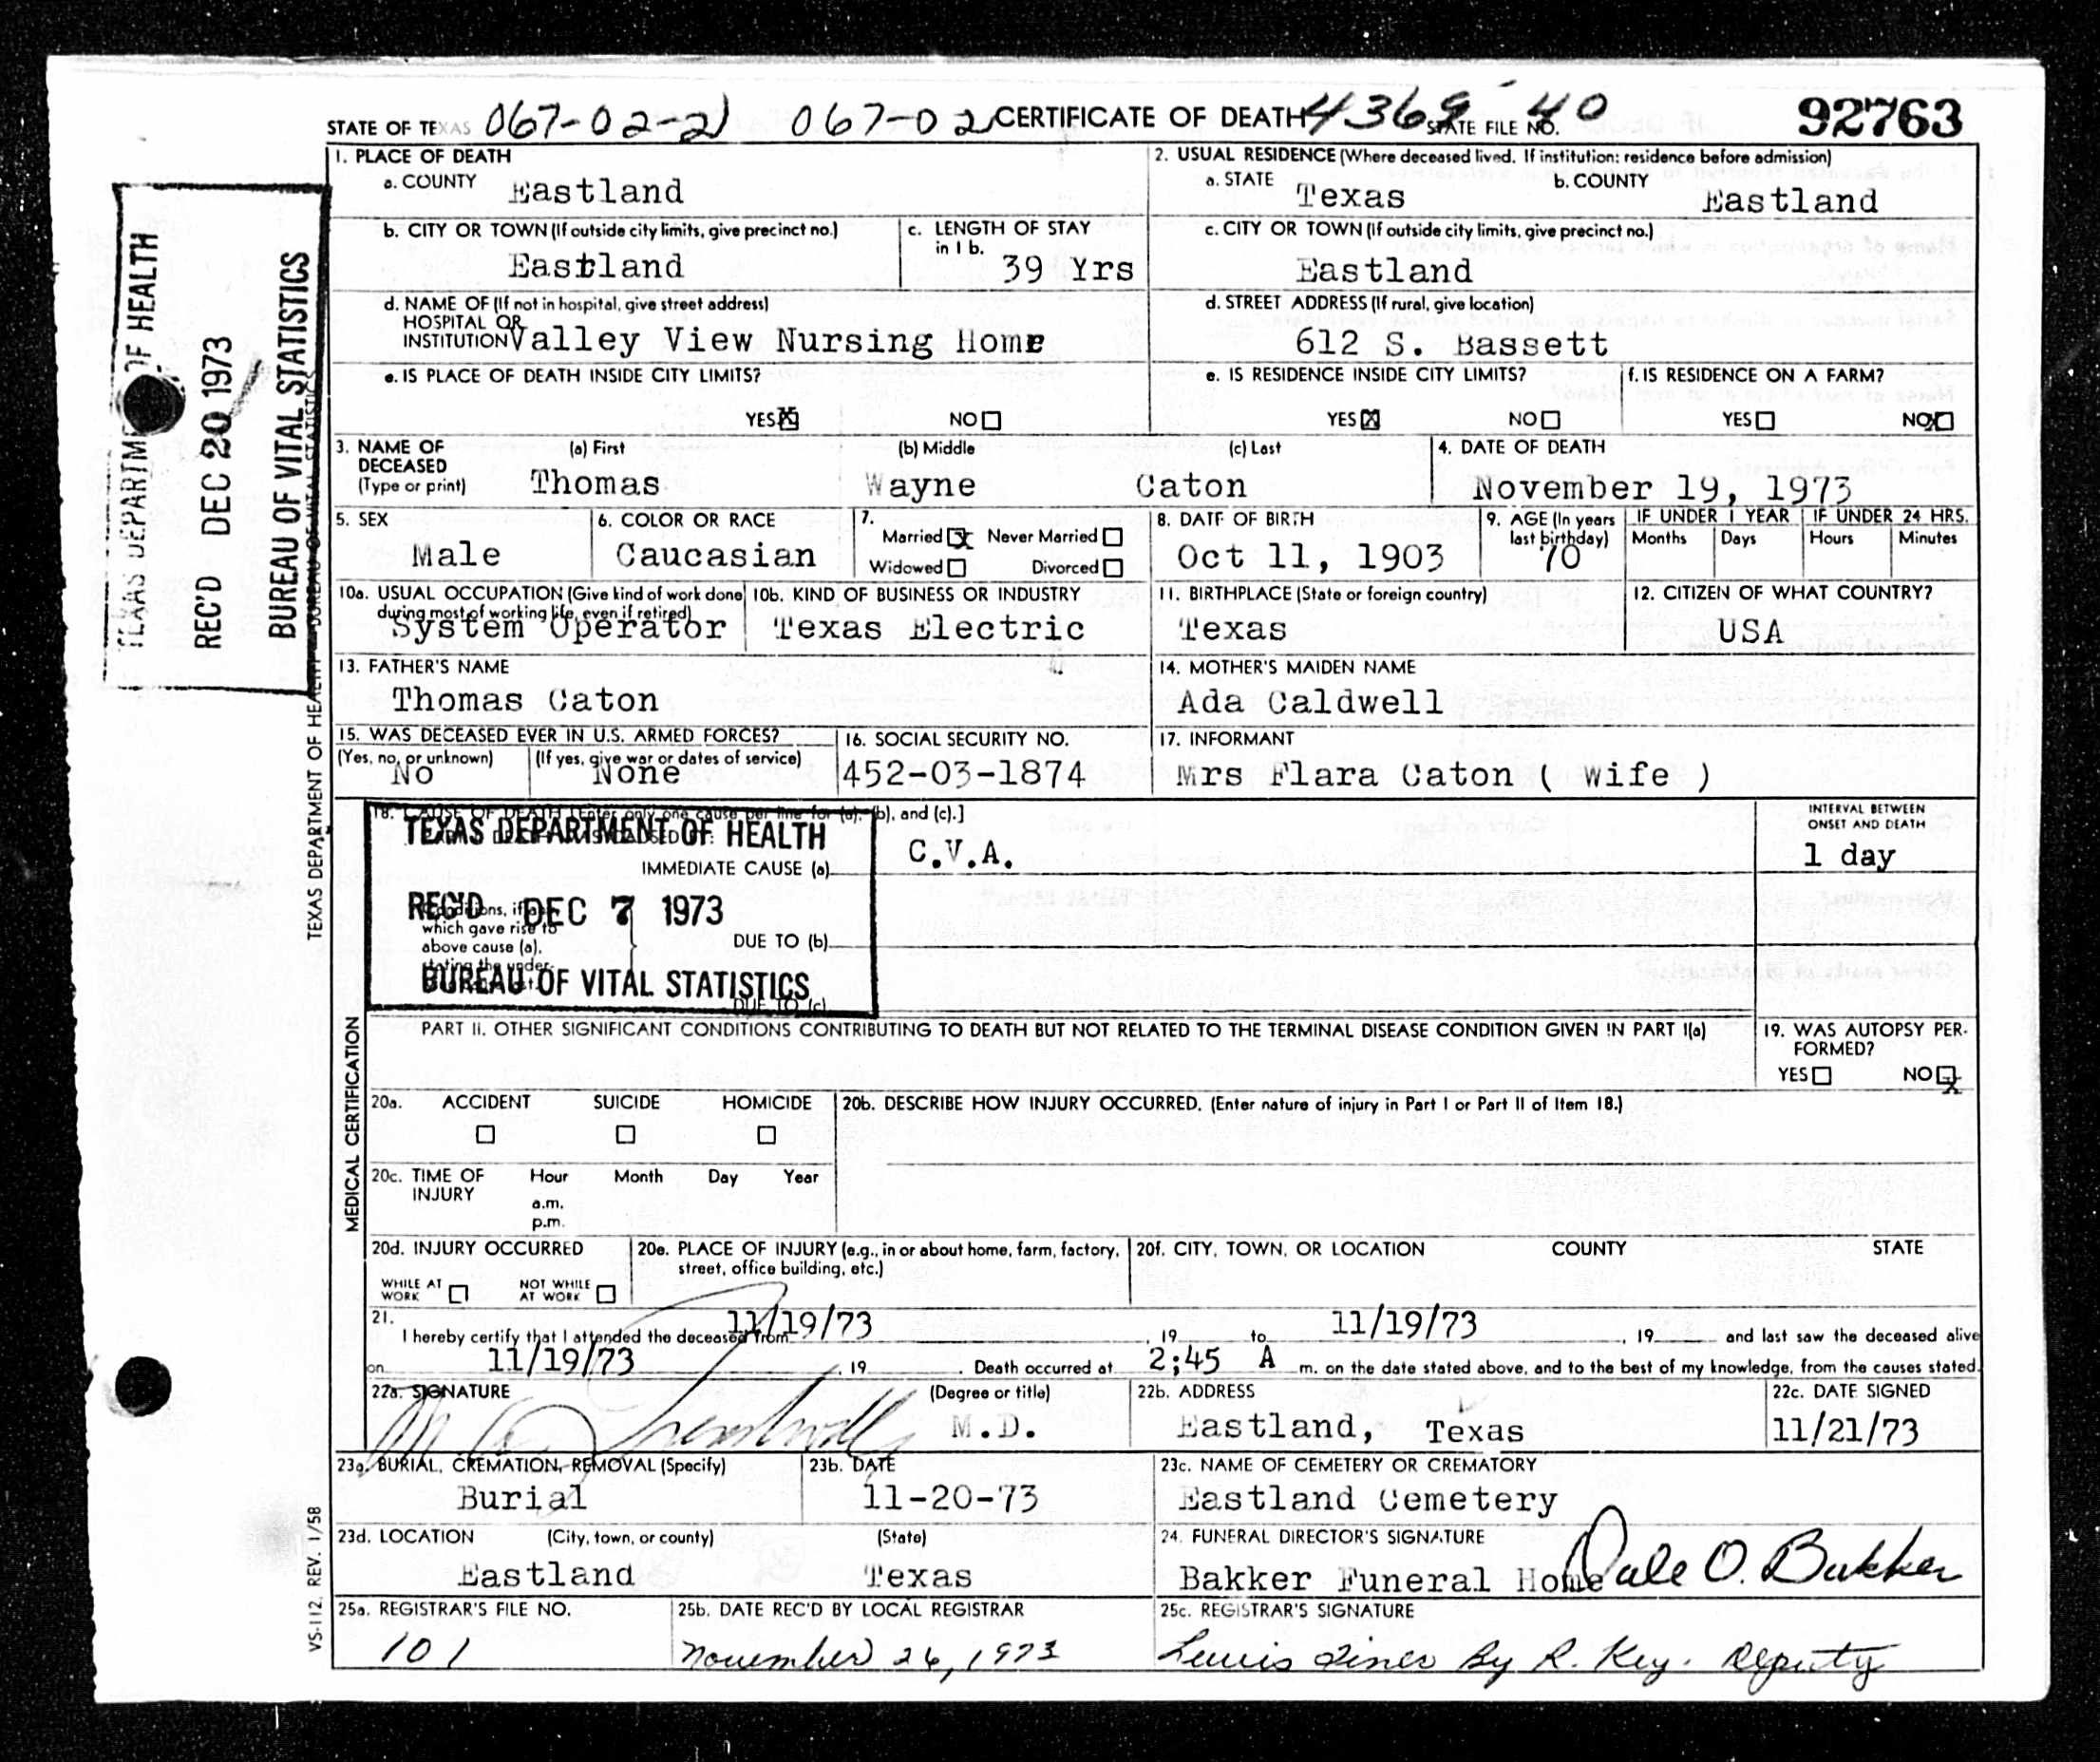 STATE OF TEXAS 067-02-2) 067-02 CERTIFICATE OF DEATH 4369-40 STATE FILE NO. 92763
1. PLACE OF DEATH
a. COUNTY Eastland
2. USUAL RESIDENCE (Where deceased lived. If institution: residence before admission)
a. STATE Texas b. COUNTY Eastland
b. CITY OR TOWN (If outside city limits, give precinct no.) Eastland
c. LENGTH OF STAY in 1 b. 39 Yrs
c. CITY OR TOWN (If outside city limits, give precinct no.) Eastland
d. NAME OF (If not in hospital, give street address)
HOSPITAL OR
INSTITUTION Valley View Nursing Home
d. STREET ADDRESS (If rural, give location)
612 S. Bassett
e. IS PLACE OF DEATH INSIDE CITY LIMITS?
YES X NO
e. IS RESIDENCE INSIDE CITY LIMITS?
YES X NO
f. IS RESIDENCE ON A FARM?
YES NO X
3. NAME OF DECEASED (Type or print)
(a) First (b) Middle (c) Last
Thomas Wayne Caton
4. DATE OF DEATH
November 19, 1973
5. SEX
Male
6. COLOR OR RACE
Caucasian
7.
Married X Never Married
Widowed Divorced
8. DATE OF BIRTH
Oct 11, 1903
9. AGE (In years last birthday)
70
IF UNDER 1 YEAR IF UNDER 24 HRS.
Months Days Hours Minutes
10a. USUAL OCCUPATION (Give kind of work done during most of working life, even if retired)
System Operator
10b. KIND OF BUSINESS OR INDUSTRY
Texas Electric
11. BIRTHPLACE (State or foreign country)
Texas
12. CITIZEN OF WHAT COUNTRY?
USA
13. FATHER'S NAME
Thomas Caton
14. MOTHER'S MAIDEN NAME
Ada Caldwell
15. WAS DECEASED EVER IN U.S. ARMED FORCES?
(Yes, no, or unknown) (If yes, give war or dates of service)
No None
16. SOCIAL SECURITY NO.
452-03-1874
17. INFORMANT
Mrs Flara Caton ( Wife )
18. CAUSE OF DEATH [Enter only one cause per line for (a), (b), and (c).]
IMMEDIATE CAUSE (a) C.V.A.
INTERVAL BETWEEN ONSET AND DEATH
1 day
which gave rise to
above cause (a),
stating the under-
DUE TO (b)
DUE TO (c)
TEXAS DEPARTMENT OF HEALTH
REC'D DEC 7 1973
BUREAU OF VITAL STATISTICS
PART II. OTHER SIGNIFICANT CONDITIONS CONTRIBUTING TO DEATH BUT NOT RELATED TO THE TERMINAL DISEASE CONDITION GIVEN IN PART I(a)
19. WAS AUTOPSY PER-
FORMED?
YES NO X
20a. ACCIDENT SUICIDE HOMICIDE
20b. DESCRIBE HOW INJURY OCCURRED. (Enter nature of injury in Part I or Part II of Item 18.)
20c. TIME OF INJURY Hour Month Day Year
a.m.
p.m.
20d. INJURY OCCURRED
WHILE AT WORK NOT WHILE AT WORK
20e. PLACE OF INJURY (e.g., in or about home, farm, factory,
street, office building, etc.)
20f. CITY, TOWN, OR LOCATION COUNTY STATE
21.
I hereby certify that I attended the deceased from 11/19/73, 19 to 11/19/73, 19 and last saw the deceased alive
on 11/19/73, 19. Death occurred at 2;45 A m. on the date stated above, and to the best of my knowledge, from the causes stated.
22a. SIGNATURE (Degree or title)
M.D.
22b. ADDRESS
Eastland, Texas
22c. DATE SIGNED
11/21/73
23a. BURIAL, CREMATION, REMOVAL (Specify)
Burial
23b. DATE
11-20-73
23c. NAME OF CEMETERY OR CREMATORY
Eastland Cemetery
23d. LOCATION (City, town, or county) (State)
Eastland Texas
24. FUNERAL DIRECTOR'S SIGNATURE
Bakker Funeral Home Dale O. Bakker
25a. REGISTRAR'S FILE NO.
101
25b. DATE REC'D BY LOCAL REGISTRAR
November 26, 1973
25c. REGISTRAR'S SIGNATURE
By R. Key. Deputy
MEDICAL CERTIFICATION
TEXAS DEPARTMENT OF HEALTH — BUREAU OF VITAL STATISTICS
VS-112, REV. 1/58
TEXAS DEPARTMENT OF HEALTH
REC'D DEC 20 1973
BUREAU OF VITAL STATISTICS